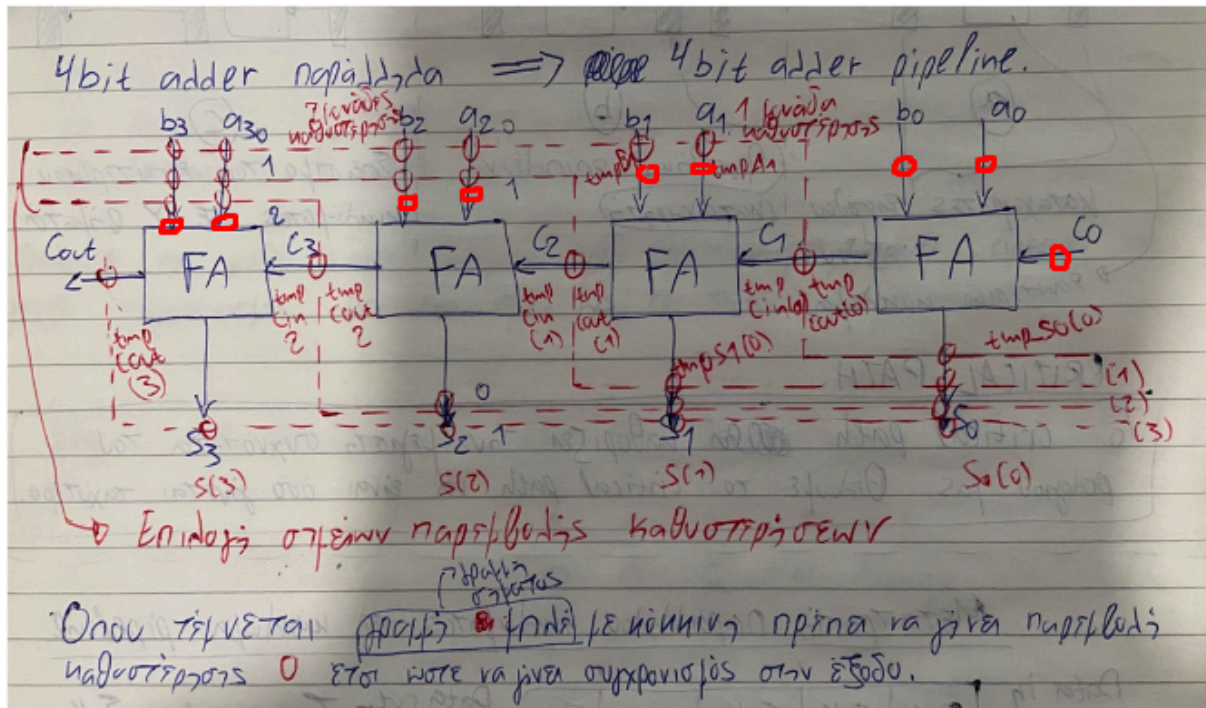 4bit adder παράλληλα ⟹ 4bit adder pipeline.
b3 a3 0 2 μονάδες καθυστέρησης b2 a2 0 b1 a1 1 μονάδα καθυστέρησης b0 a0
1 1 tmpB1 tmpA1
2
Cout FA C3 FA C2 FA C1 FA C0
tmp cout (3) tmp cin 2 tmp cout 2 tmp cin (1) tmp cout (1) tmp cin(0) tmp cout(0)
tmpS1(0) tmp_S0(0)
0 (1)
1 (2)
S3 S2 S1 S0 (3)
S(3) S(2) S(1) S0(0)
Επιλογή σημείων παρεμβολής καθυστερήσεων
γραμμή σήματος
Όπου τέμνεται γραμμή μπλέ με κόκκινη πρέπει να γίνει παρεμβολή
καθυστέρησης 0 έτσι ώστε να γίνει συγχρονισμός στην έξοδο.